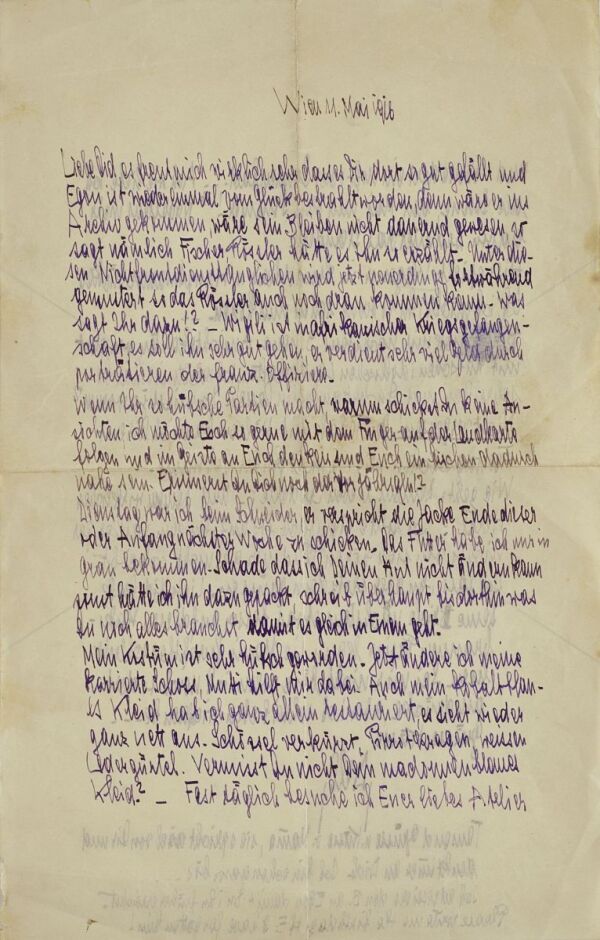 Wien 11. Mai 1916
Liebe Did, es freut mich wirklich sehr dass es Dir dort so gut gefällt und
Egon ist wieder einmal vom Glück bestrahlt worden, denn wäre er ins
Archiv gekommen wäre sein Bleiben nicht dauernd gewesen, so
sagt nämlich Fischer. Rössler hätte es ihm so erzählt. – Unter die-
sen Nichtfrontdiensttauglichen wird jetzt neuerdings fortwährend
gemustert so das Rössler auch noch dran kommen kann. – Was
sagt Ihr dazu!? – ist marokkanischer Kriegsgefangen-
schaft, es soll ihm sehr gut gehen, er verdient sehr viel Geld durch
porträtieren der franz. Offiziere.
Wenn Ihr so hübsche Partien macht, warum schickst Du keine An-
sichten, ich möchte Euch so gerne mit dem Finger auf der Landkarte
folgen und im Geiste an Euch denken und Euch ein bischen dadurch
nahe sein. Erinnerst du Dich noch der
Dienstag war ich beim Schneider, er verspricht die Jacke Ende dieser
oder Anfang nächster Woche zu schicken. Das Futter habe ich nur in
grau bekommen. Schade dass ich Deinen Hut nicht ändern kann
sonst hätte ich ihn dazu gepackt, schreib überhaupt bis dorthin was
Du noch alles brauchst damit es gleich in Einem geht.
Mein Kostüm ist sehr hübsch geworden. – Jetzt ändere ich meine
karrierte Schoss, Mutti hilft mir dabei. Auch mein kobaltblau-
es Kleid hab ich ganz allein restauriert, es sieht wieder
ganz nett aus. – Schössel verkürzt, kragen, weissen
Ledergürtel. Vermisst Du nicht Dein madonnenblaues
Kleid? – Fast täglich besuche ich Euer liebes Atelier